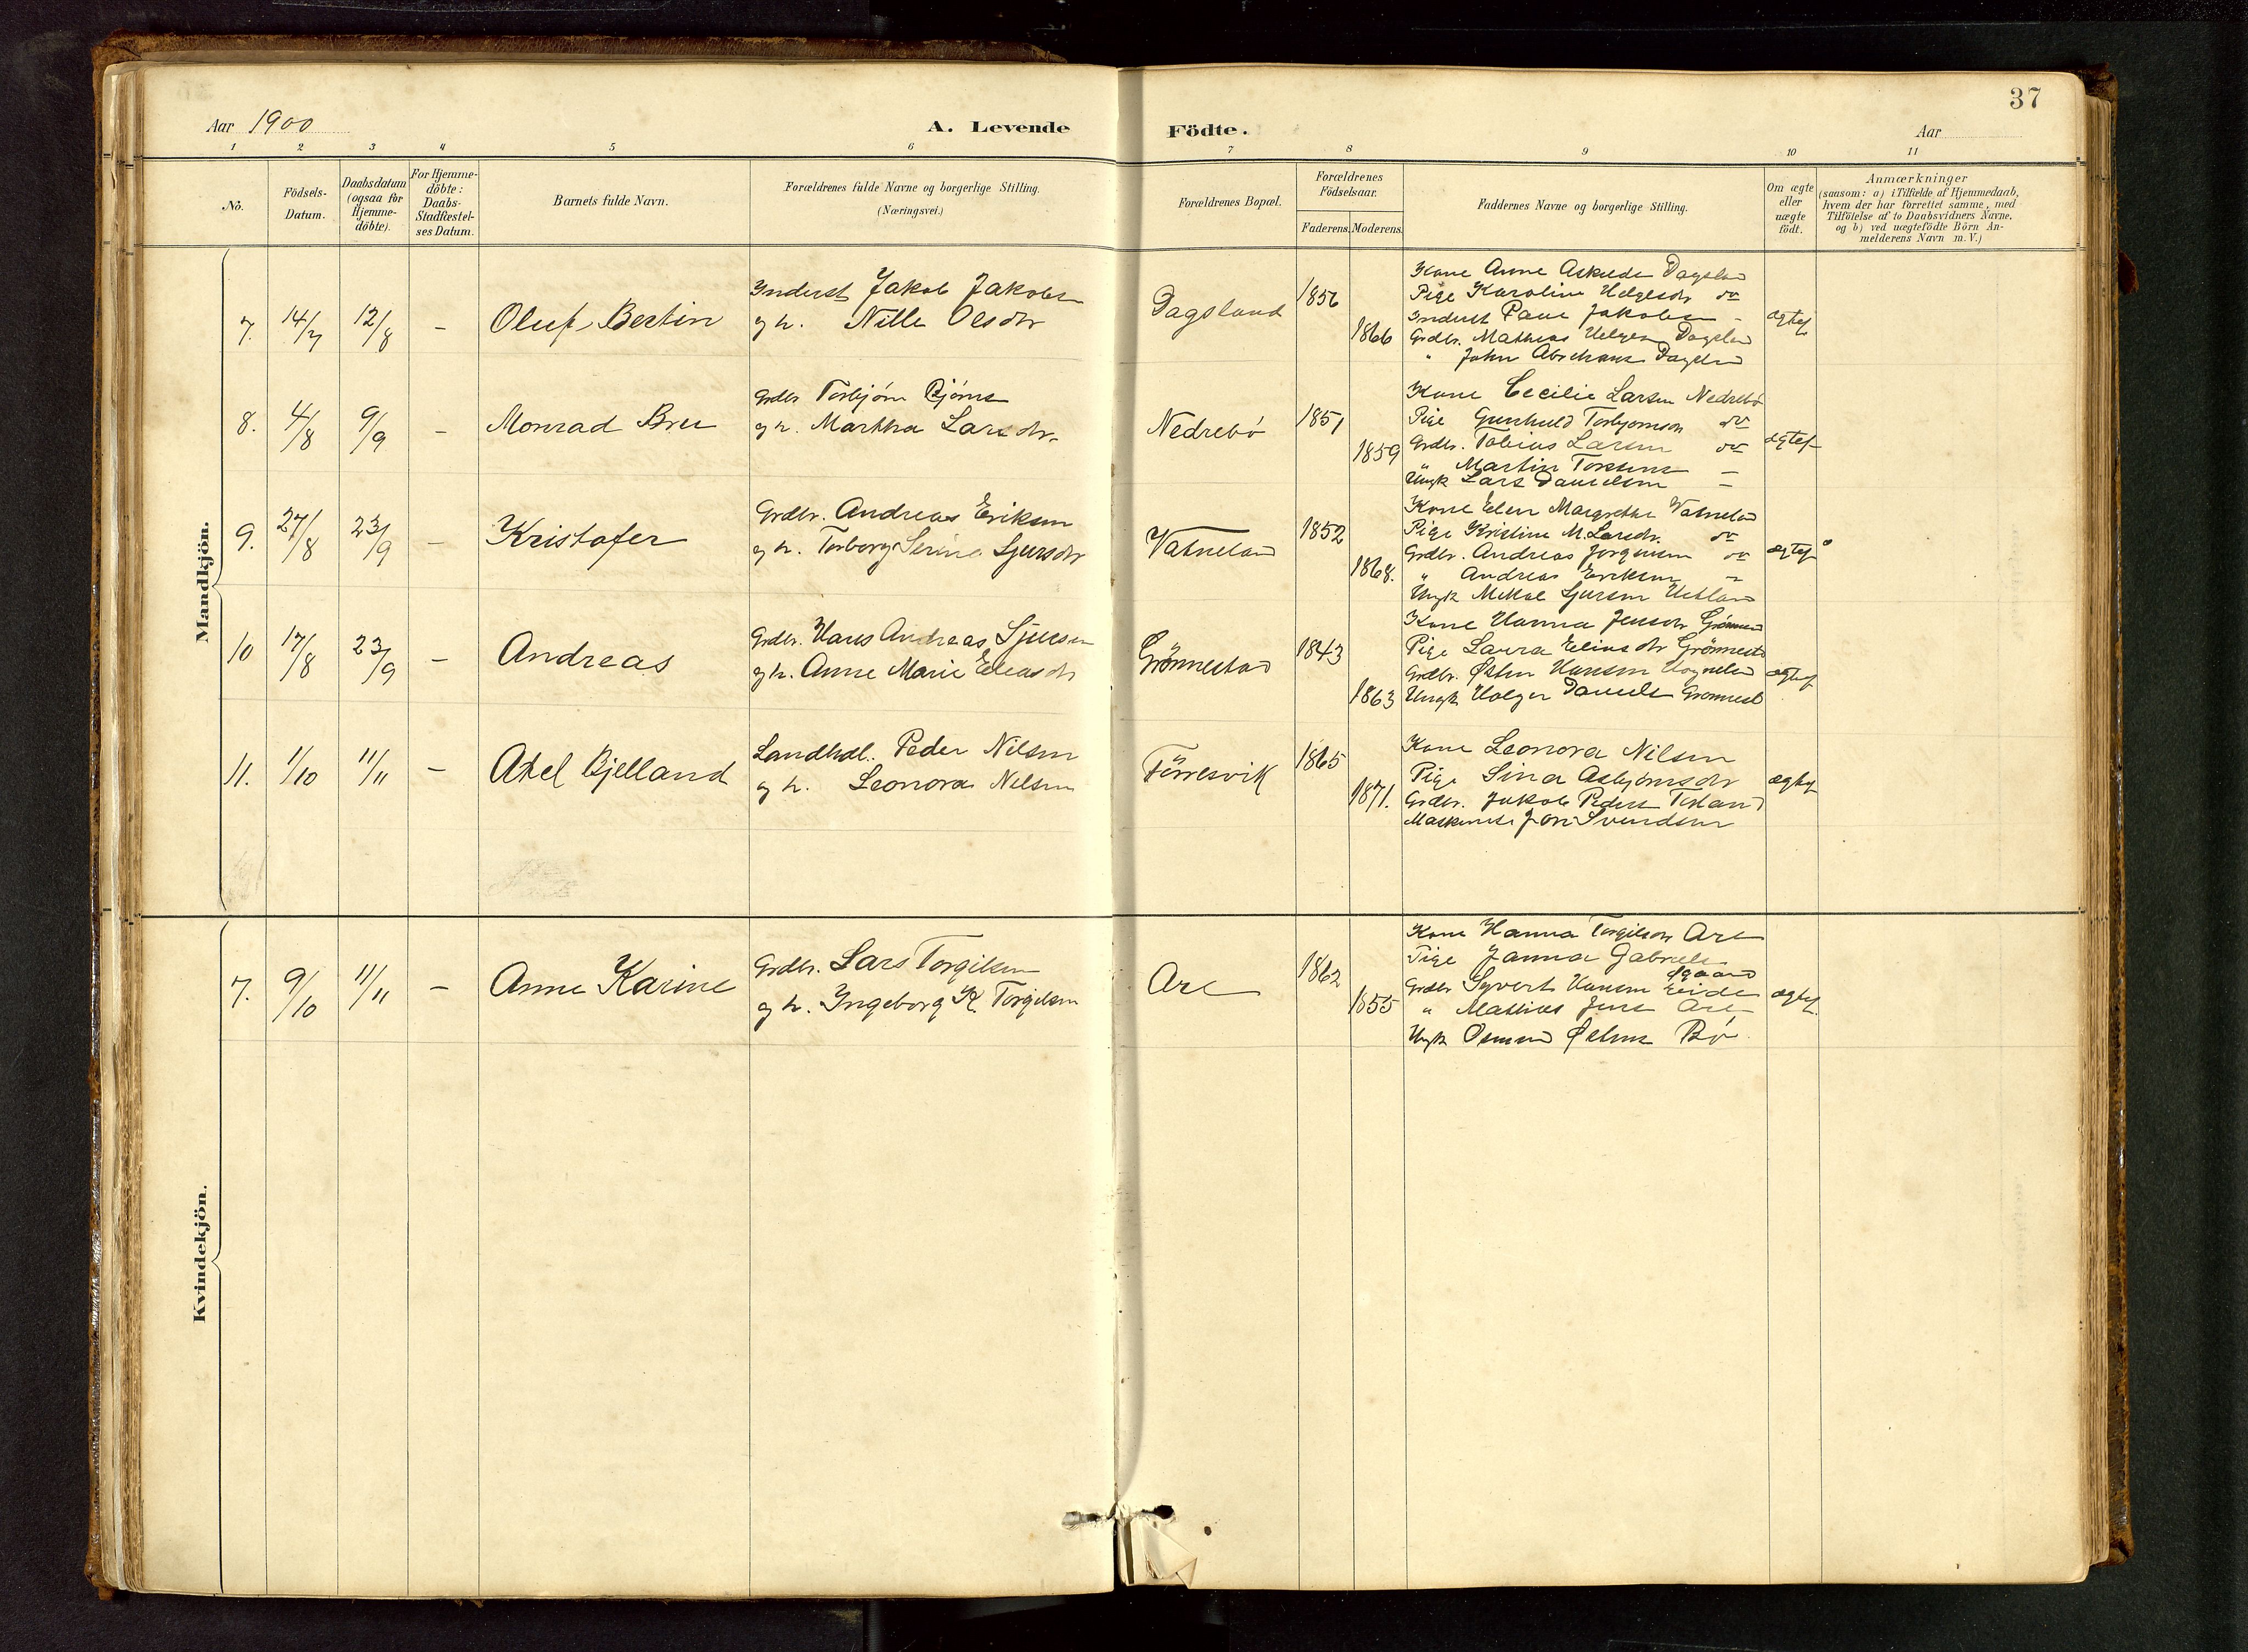 37
Aar 1900 A. Levende Födte. Aar
1 2 3 4 5 6 7 8 9 10 11
No.
Födsels-
Datum.
Daabsdatum
(ogsaa for
Hjemme-
döbte).
For Hjemme-
döbte:
Daabs-
Stadfæstel-
ses Datum.
Barnets fulde Navn.
Forældrenes fulde Navne og borgerlige Stilling.
(Næringsvei.)
Forældrenes Bopæl.
Forældrenes
Födselsaar.
Faderens. Moderens.
Faddernes Navne og borgerlige Stilling.
Om ægte
eller
uægte
födt.
Anmærkninger
(saasom: a) i Tilfælde af Hjemmedaab,
hvem der har forrettet samme, med
Tilföielse af to Daabsvidners Navne.
og b) ved uægtefödte Börn An-
melderens Navn m. V.)
Mandkjön.
7. 14/7 12/8 – Oluf Bertin
Inderst Jakob Jakobs
og h. Nille Olsdtr
Dagsland 1856
1866
Kone Anne Dagslad
Pige Karoline Helgesdr do
Inderst Jakobsen –
Grdbr. Mathias Helgesen Dagslad
" John Dagslad
ægtef
8. 4/8 9/9 – Monrad Breu
Grdbr Torbjörn Björns
og h. Martha Larsdtr.
Nedrebö 1851
1859
Kone Cecilie Larsen Nedrebö
Pige Gunhild Torbjornson do
Grdbr. Tobias Larsen do
" Martin –
Ungk Lars Danielsen –
ægtef
9. 27/8 23/9 – Kristofer
Grdbr. Andreas Eriksen
og h. Torborg Serine Sjursdtr
Vatneland 1852
1868.
Kone Elen Margrethe Vatnelad
Pige Kristine M. Larsdr. do
Grdbr. Andreas Jorgensen do
" Andreas Eriksen –
Ungk Mikal Sjursen
ægtef
10 17/8 23/9 – Andreas
Grdbr. Hans Andreas Sjursen
og h. Anne Marie Eliasdtr
Grönnestad 1843
1863
Kone Hanna Jensdr Grönnes
Pige Laura Eliasdtr Grönnest
Grdbr. Østen Hansen
Ungk Holger Daniels Grønnest
ægtef
11. 1/10 11/11 – Axel Bjelland
Landhdl. Peder Nilsen
og h. Leonora Nilsen
Förresvik 1865
1871.
Kone Leonora Nilsen
Pige Sina Asbjörnsdtr
Grdbr. Jakob Peders
Maskinist Jon Svendsen
ægtef
Kvindekjön.
7. 9/10 11/11 – Anne Karine
Grdbr. Lars Torgilsen
og h. Ingeborg K. Torgilsen
Are 1862
1855
Kone Hanna Torgilsen Are
Pige Janna Gabriels
Grdbr Syvert Hansen Eide
" Mathias Jens Are
Ungk Osmund Østens Bö
ægtef